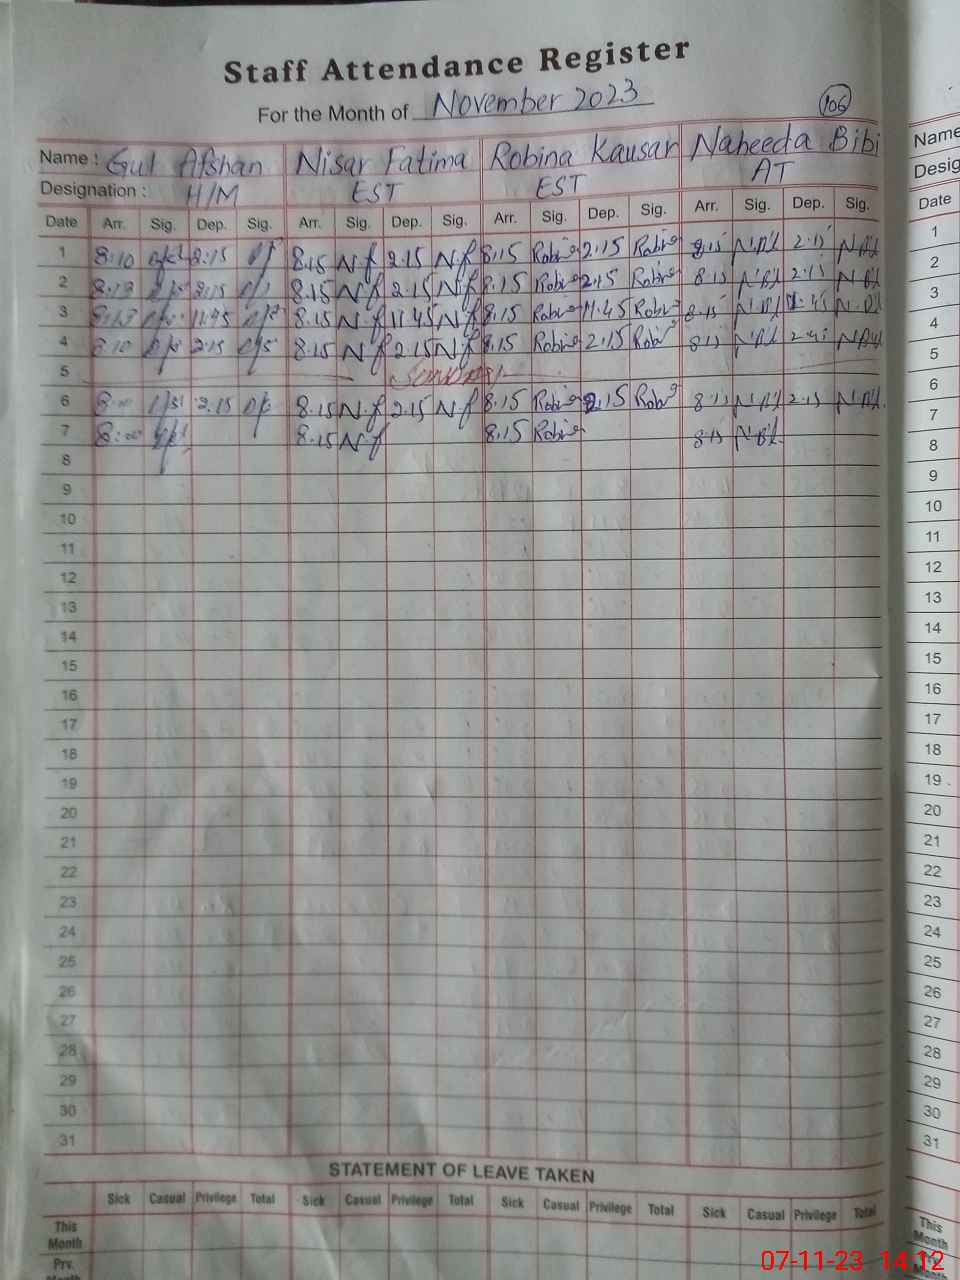 Staff Attendance Register
For the Month of November 2023
106
Name : Gul Afshan Nisar Fatima Robina Kausar Naheeda Bibi Name
Designation : H/M EST EST AT Desig
Date Arr. Sig. Dep. Sig. Arr. Sig. Dep. Sig. Arr. Sig. Dep. Sig. Arr. Sig. Dep. Sig. Date
1 8:10 2:15 8.15 N.f 2.15 N.f 8.15 Robina 2.15 Robina 8.15 2.15 1
2 2:15 8.15 N.f 2.15 N.f 8.15 Robina 2.15 Robina 8.15 2.15 2
3 11:45 8.15 N.f 11.45 N.f 8.15 Robina 11.45 Robina 8.15 3
4 8:10 2:15 8.15 N.f 2.15 N.f 8.15 Robina 2.15 8.15 4
5 Sunday 5
6 8:00 2.15 8.15 N.f 2.15 N.f 8.15 Robina 2.15 8.15 2.15 6
7 8:00 8.15 N.f 8.15 Robina 8.15 7
8 8
9 9
10 10
11 11
12 12
13 13
14 14
15 15
16 16
17 17
18 18
19 19
20 20
21 21
22 22
23 23
24 24
25 25
26 26
27 27
28 28
29 29
30 30
31 31
STATEMENT OF LEAVE TAKEN
Sick Casual Privilege Total Sick Casual Privilege Total Sick Casual Privilege Total Sick Casual Privilege Total
This Month This Month
Prv. Month
07-11-23 14:12